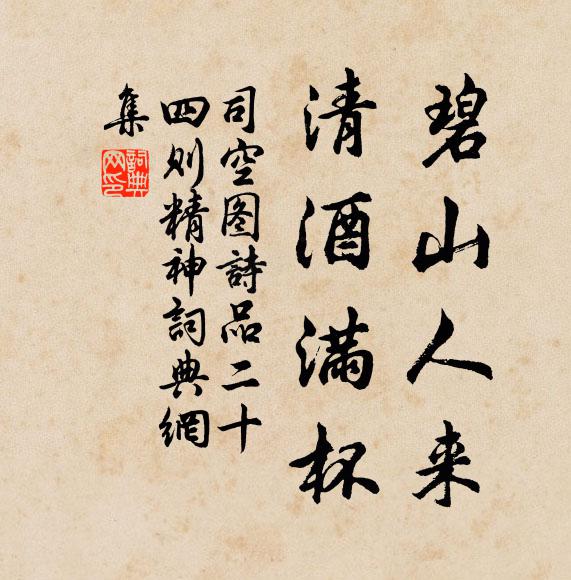 碧山人来
清酒满杯
司空图詩品二十
四则精神詞典網
集
詞典
网印